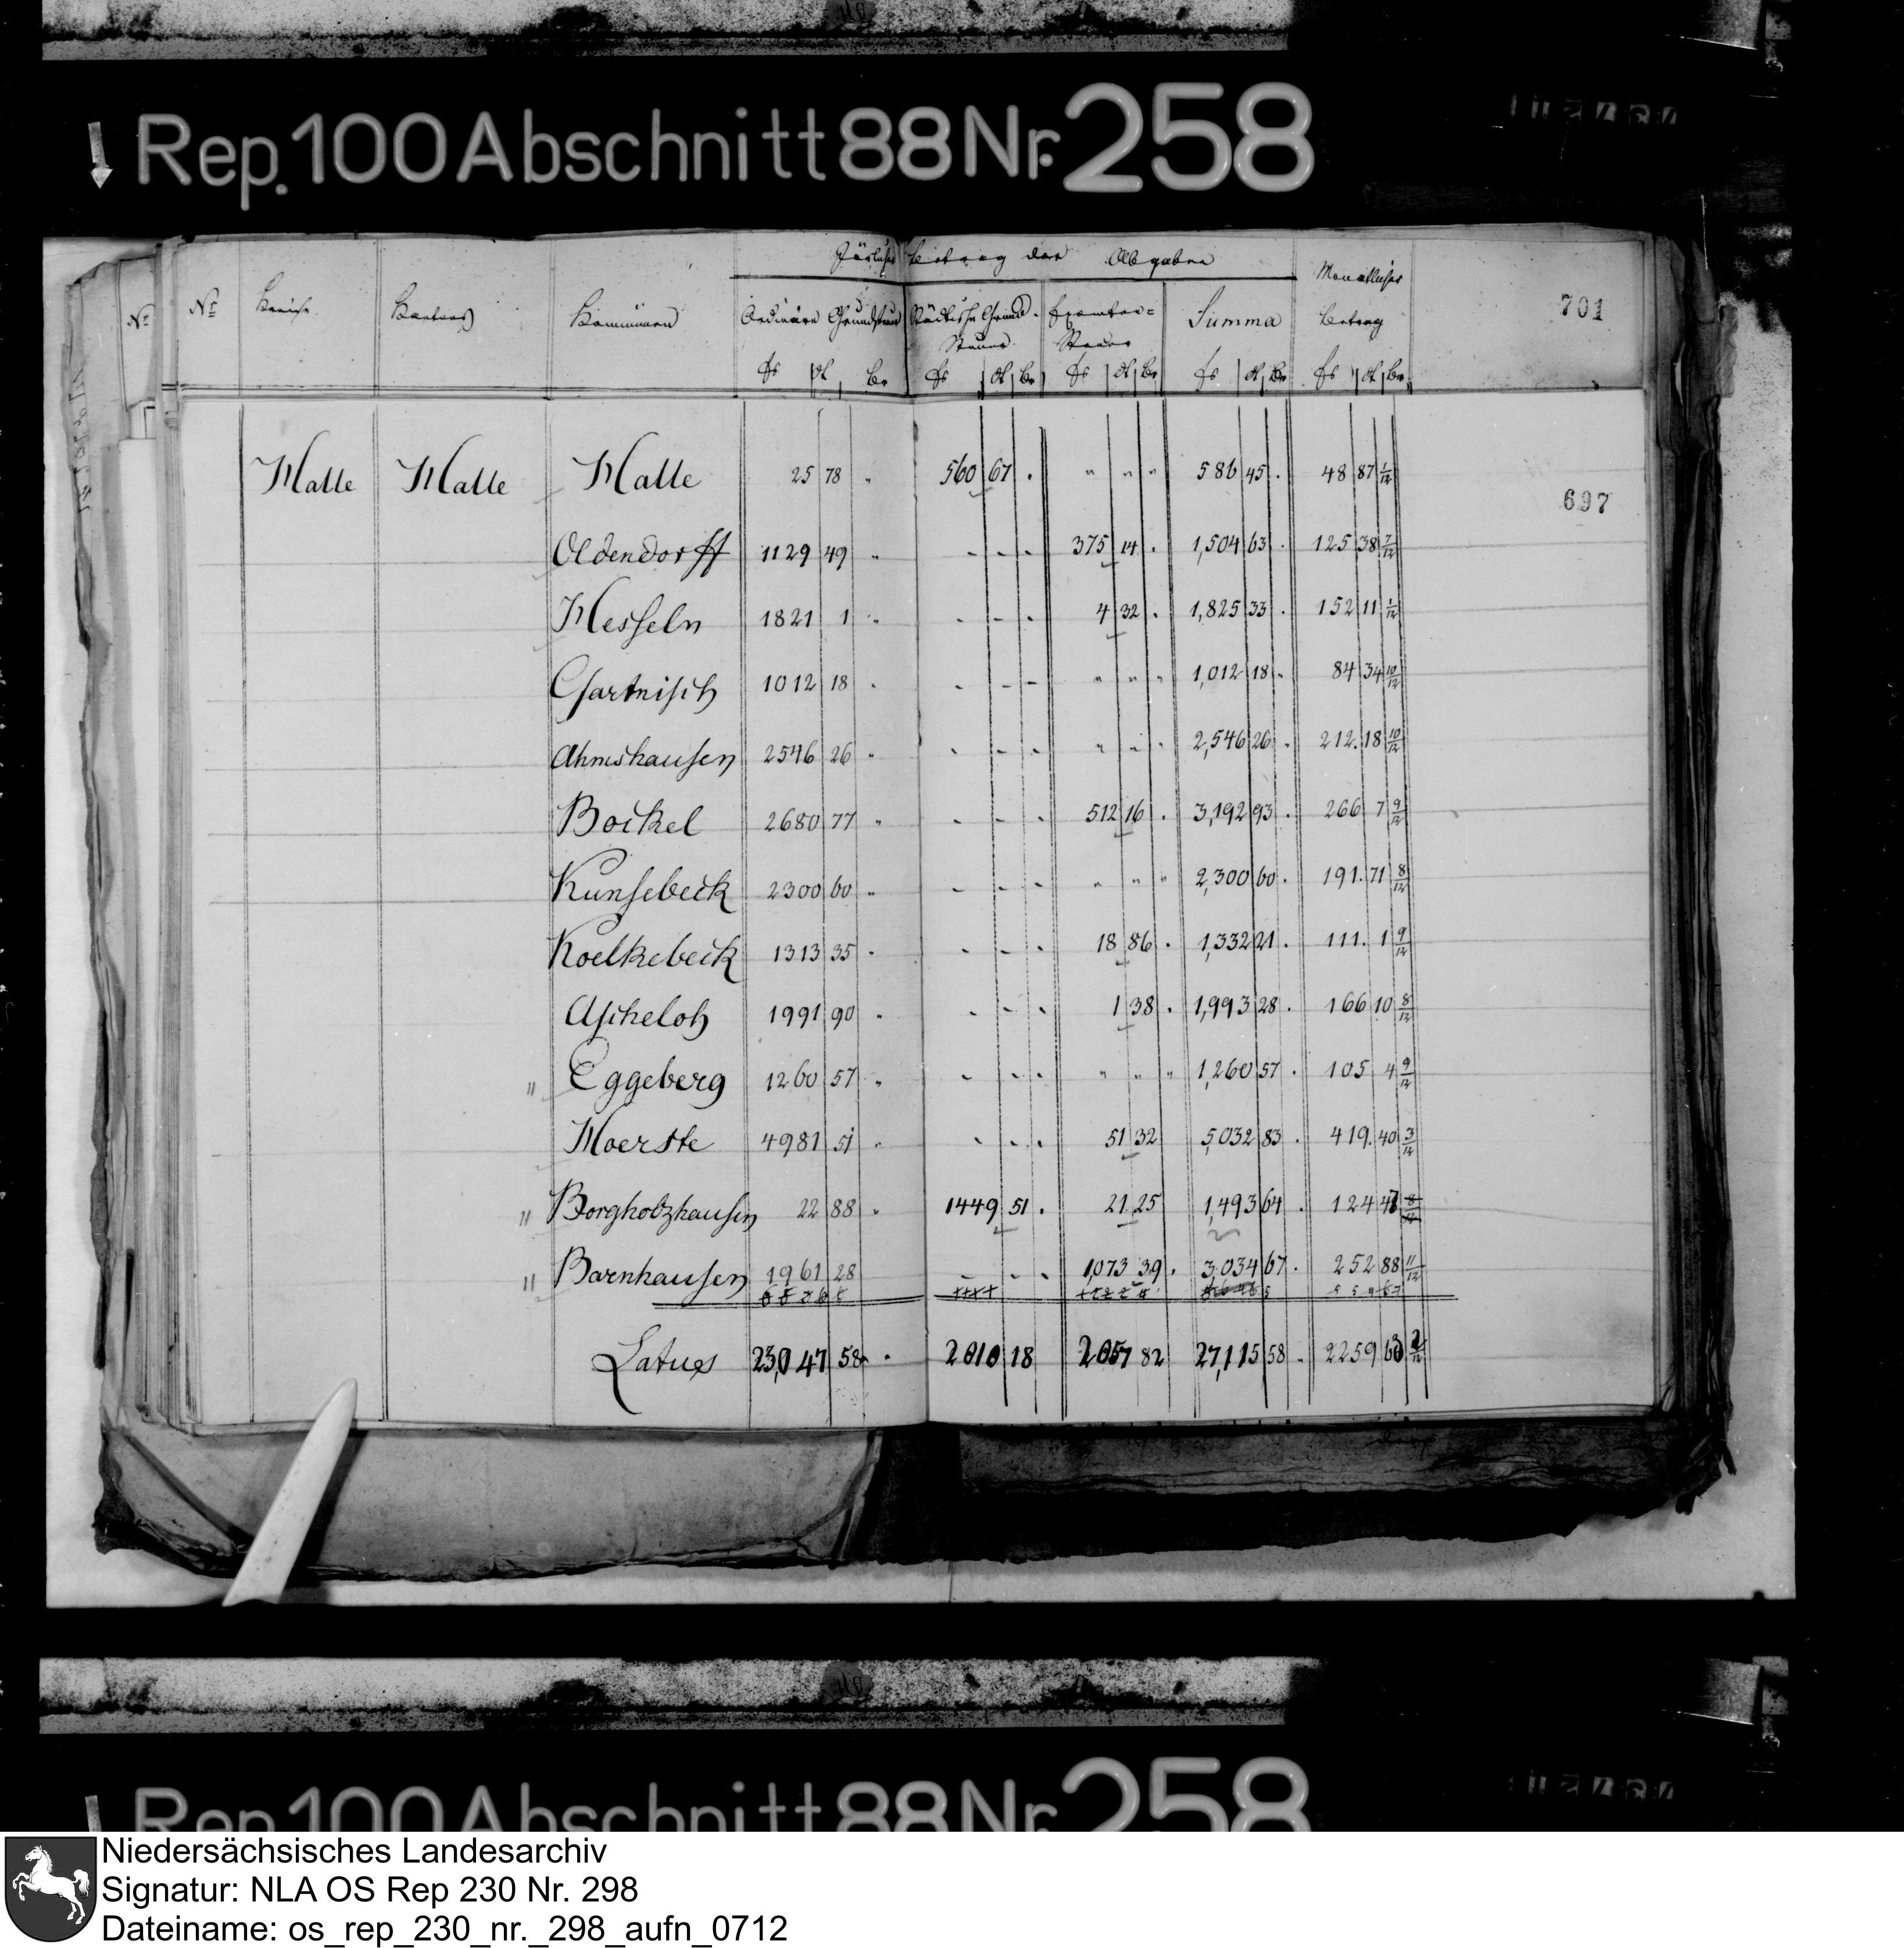 Rep. 100 Abschnitt 88 Nr. 258
Jährlicher Betrag der Abgaben
Monatlicher
701
No No Kreise Kantons Kommünen Ordinäre Grundsteuer Städtische Grund- Exemten= Summa Betrag
Steuer Steuer
fs ct be fs ct be fs ct be fs ct be fs ct be
Halle Halle Halle 25 78 " 560 67 . " " " 586 45 . 48 87 1/12
697
Oldendorff 1129 49 " - - - 375 14 . 1,504 63 . 125 38 7/12
Hesseln 1821 1 " - - - 4 32 . 1,825 33 . 152 11 1/12
Gartnisch 1012 18 " - - - " " " 1,012 18 . 84 34 10/12
Ahmshausen 2546 26 " - - - " " " 2,546 26 . 212. 18 10/12
Bockel 2680 77 " - - - 512 16 . 3,192 93 . 266 7 9/12
Kunsebeck 2300 60 " - - - " " " 2,300 60 . 191. 71 8/12
Koelkebeck 1313 35 " - - - 18 86 . 1,332 21 . 111. 1 9/12
Ascheloh 1991 90 " - - - 1 38 . 1,993 28 . 166 10 8/12
" Eggeberg 1260 57 " - - - " " " 1,260 57 . 105 4 9/12
Hoerste 4981 51 " - - - 51 32 5,032 83 . 419. 40 3/12
" Borgholzhausen 22 88 " 1449 51 . 21 25 1,493 64 . 124 47 8/12
" Barnhausen 1961 28 - - - 1,073 39 . 3,034 67 . 252 88 11/12
Latus 23,047 58 " 2010 18 2057 82 27,115 58 . 2259 63 2/12
Rep. 100 Abschnitt 88 Nr. 258
Niedersächsisches Landesarchiv
Signatur: NLA OS Rep 230 Nr. 298
Dateiname: os_rep_230_nr._298_aufn_0712